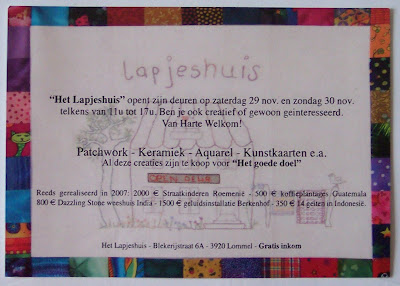 Lapjeshuis
“Het Lapjeshuis” opent zijn deuren op zaterdag 29 nov. en zondag 30 nov.
telkens van 11u tot 17u. Ben je ook creatief of gewoon geinteresseerd.
Van Harte Welkom!
Patchwork - Keramiek - Aquarel - Kunstkaarten e.a.
Al deze creaties zijn te koop voor “Het goede doel”
OPEN DEUR
Reeds gerealiseerd in 2007: 2000 € Straatkinderen Roemenië - 500 € koffieplantages Guatemala
800 € Dazzling Stone weeshuis India - 1500 € geluidsinstallatie Berkenhof - 350 € 14 geiten in Indonesië.
Het Lapjeshuis - Blekerijstraat 6A - 3920 Lommel - Gratis inkom